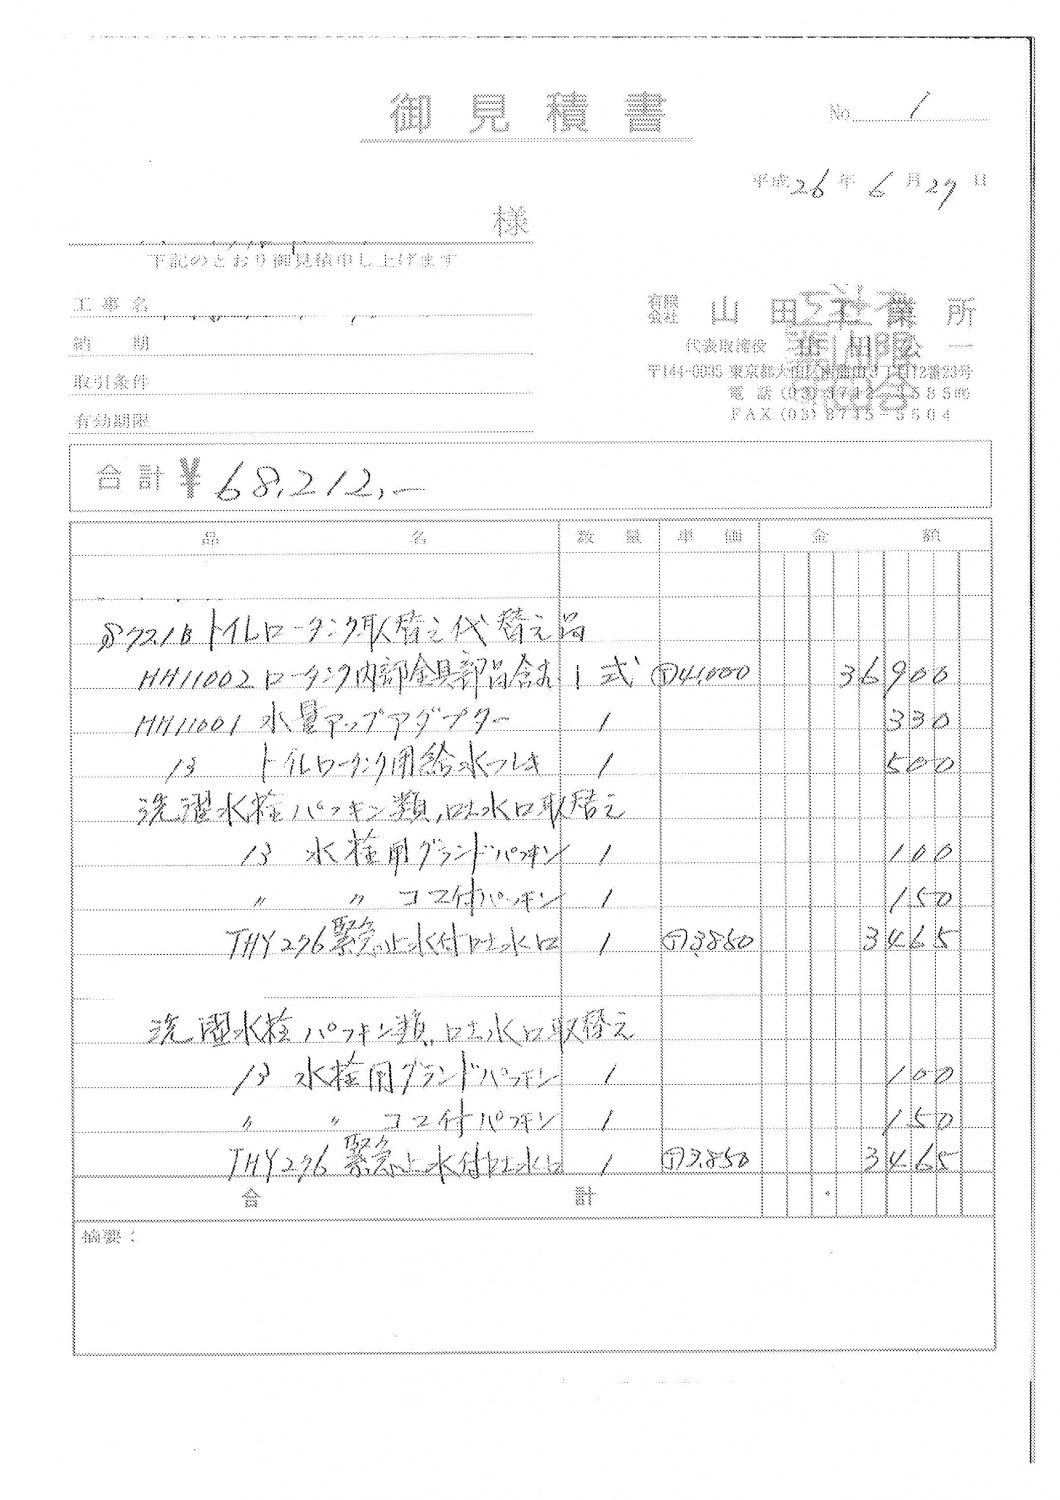 御見積書
No. 1
平成 26 年 6 月 27 日
様
下記のとおり御見積申し上げます
工事名
納期
取引条件
有効期限
有限会社 山田工業所
代表取締役
〒144-0035
電話 (03)
FAX (03) 3745-5604
合計 ¥68,212,-
品名 数量 単価 金額
トイレロータンク取替え代替え品
HH11002 ロータンク内部金具部品含む 1式 41,000 36900
HH11001 水量アップアダプター 1 330
13 トイレロータンク用給水フレキ 1 500
洗濯水栓パッキン類,吐水口取替え
13 水栓用グランドパッキン 1 100
〃 〃 コマ付パッキン 1 150
THY276 緊急止水付吐水口 1 3,850 3465
洗濯水栓パッキン類,吐水口取替え
13 水栓用グランドパッキン 1 100
〃 〃 コマ付パッキン 1 150
THY276 緊急止水付吐水口 1 3,850 3465
合計
摘要: